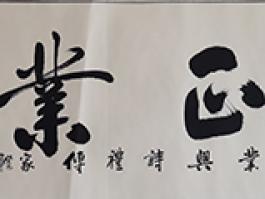 正業
業興詩禮傳家